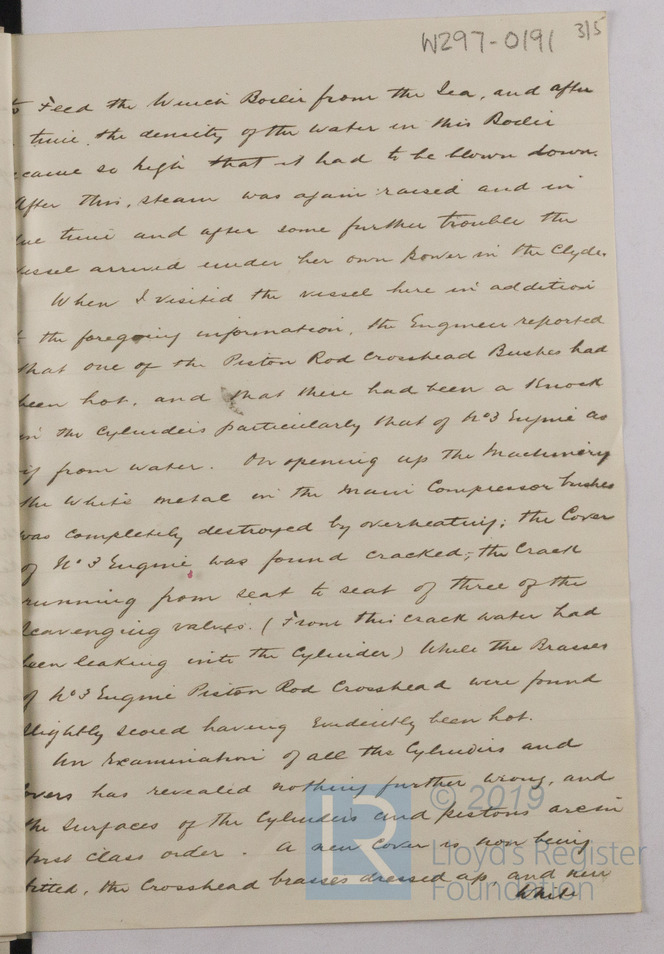 W297-0191
3/5
to Feed the Winch Boiler from the Sea, and after
time, the density of the water in this Boiler
ecame so high that it had to be blown down.
After this, steam was again raised and in
ue time and after some further trouble the
essel arrived under her own power in the Clyde.
When I visited the vessel here in addition
t the foregoing information, the Engineer reported
that one of the Piston Rod Crosshead Bushes had
been hot, and that there had been a Knock
in the Cylinders particularly that of No 3 Engine as
if from water. On opening up the Machinery
the White metal in the Main Compressor bushes
was completely destroyed by overheating; the Cover
of No 3 Engine was found cracked; the Crack
running from seat to seat of three of the
Scavenging valves. (From this crack water had
been leaking into the Cylinder) While the Brasses
of No 3 Engine Piston Rod Crosshead were found
slightly scored having Evidently been hot.
An Examination of all the Cylinders and
overs has revealed nothing further wrong, and
the surfaces of the Cylinders and pistons are in
first class order. A new Cover is now being
fitted, the Crosshead brasses dressed up, and new
White
LR
© 2019
Lloyd's Register
Foundation